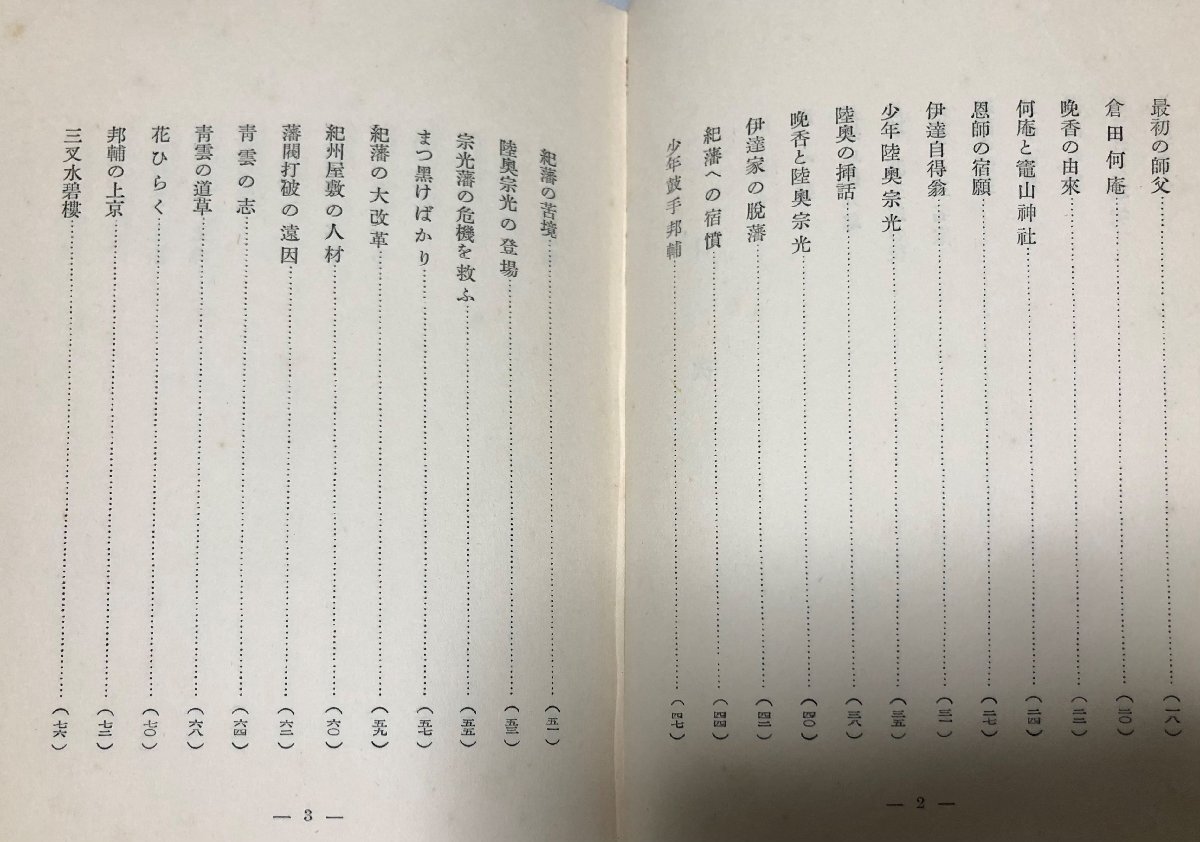 最初の師父……………………(一八)
倉田何庵……………………(二〇)
晩香の由來……………………(二二)
何庵と竈山神社……………………(二四)
恩師の宿願……………………(二七)
伊達自得翁……………………(三一)
少年陸奥宗光……………………(三五)
陸奥の挿話……………………(三八)
晩香と陸奥宗光……………………(四〇)
伊達家の脱藩……………………(四二)
紀藩への宿憤……………………(四四)
少年鼓手邦輔……………………(四七)
— 2 —
紀藩の苦境……………………(五一)
陸奥宗光の登場……………………(五三)
宗光藩の危機を救ふ……………………(五五)
まつ黒けばかり……………………(五七)
紀藩の大改革……………………(五九)
紀州屋敷の人材……………………(六〇)
藩閥打破の遠因……………………(六二)
靑雲の志……………………(六四)
靑雲の道草……………………(六八)
花ひらく……………………(七〇)
邦輔の上京……………………(七二)
三叉水碧樓……………………(七六)
— 3 —